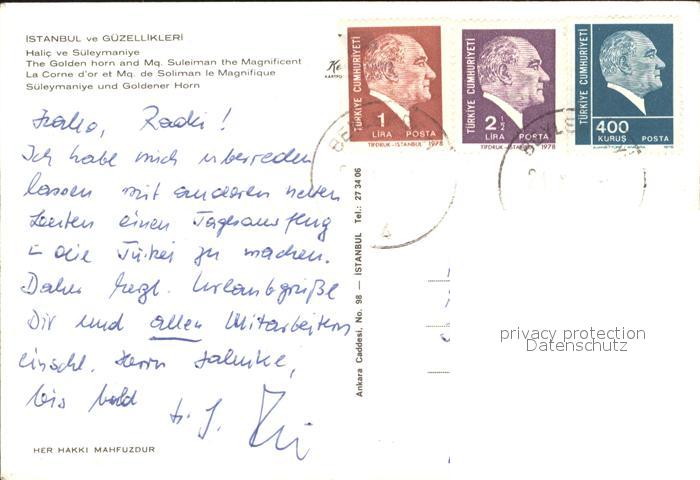 İSTANBUL ve GÜZELLİKLERİ
Haliç ve Süleymaniye
The Golden horn and Mq. Suleiman the Magnificent
La Corne d'or et Mq. de Soliman le Magnifique
Süleymaniye und Goldener Horn
TÜRKİYE CUMHURİYETİ
1
LİRA POSTA
TİFDRUK-İSTANBUL 1978
TÜRKİYE CUMHURİYETİ
2 1/2
LİRA POSTA
TİFDRUK-İSTANBUL 1978
TÜRKİYE CUMHURİYETİ
400
KURUŞ POSTA
Ich habe mich überreden
lassen mit anderen netten
Leuten einen Tagesausflug
in die Türkei zu machen.
Daher herzl. Urlaubsgrüße
Dir und allen Mitarbeitern
einschl. Herrn
bis bald
Ankara Caddesi, No. 98 — İSTANBUL Tel.: 27 34 06
privacy protection
Datenschutz
HER HAKKI MAHFUZDUR